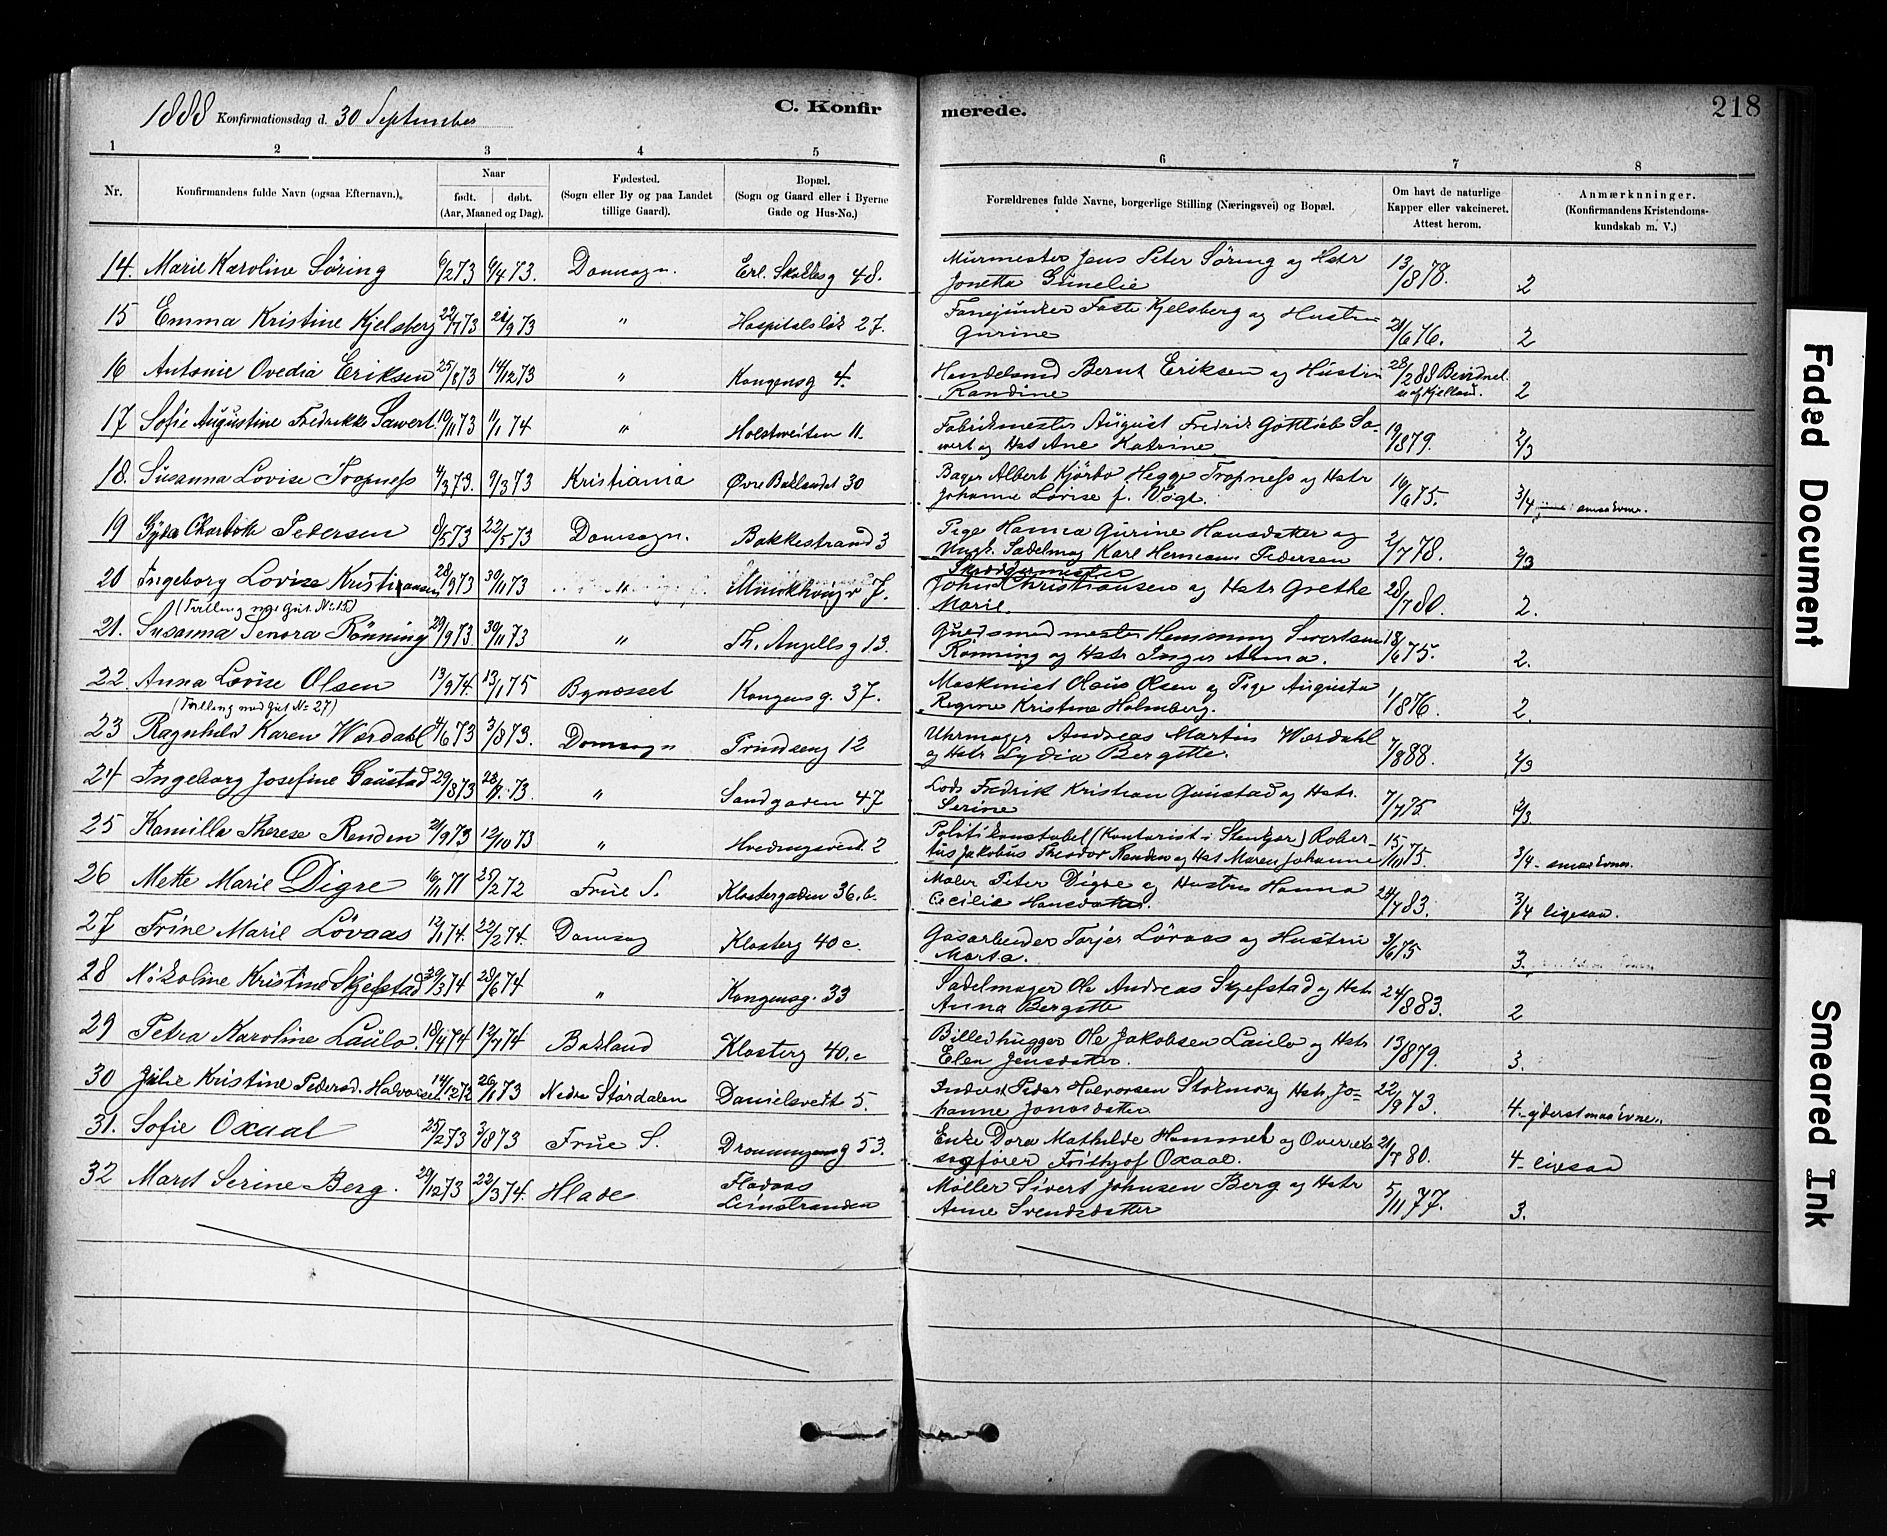 1888 Konfirmationsdag d. 30 September
C. Konfir merede.
218
1 2 3 4 5 6 7 8
Nr.
Konfirmandens fulde Navn (ogsaa Efternavn.).
Naar
født. døbt.
(Aar, Maaned og Dag).
Fødested.
(Sogn eller By og paa Landet
tillige Gaard).
Bopæl.
(Sogn og Gaard eller i Byerne
Gade og Hus-No.)
Forældrenes fulde Navne, borgerlige Stilling (Næringsvei) og Bopæl.
Om havt de naturlige
Kapper eller vakcineret.
Attest herom.
Anmærknninger.
(Konfirmandens Kristendoms-
kundskab m. V.)
14. Marie Karoline Søring 6/2 73 6/4 73. Domsogn. Erl. Skakkesg 48. Murmester Jens Peter Søring og Hstr 13/8 78. 2
Jonetta Gunelie
15 Emma Kristine Kjelsberg 22/7 73 21/9 73 " Hospitalsløk 27. Fanejunker Faste Kjelsberg og Hustru 21/6 76. 2
Gurine
16 Antonie Ovedia Eriksen 25/8 73 14/12 73 " Kongensg 4. Handelsmd Bernt Eriksen og Hustru 28/2 88 Bevidnet 2
Randine
af Kjelland.
17 Sofie Augustine Fredrikke Sawert. 10/11 73 11/1 74 " Holstveiten 11. Fabrikmester August Fredrik Gottlieb Sa- 19/8 79. 2/3
wert og Hst Ane Katrine
18. Susanna Lovise Tropness 4/3 73. 9/3 73 Kristiania Øvre Baklandet 30 Bager Albert Kjørbo Hegge Tropness og Hstr 16/6 75. 3/4 smaa Evner.
Johanne Lovise f. Vogt.
19 Gyda Charlotte Petersen 8/5 73 22/5 73 Domsogn. Bakkestrand 3 Pige Hanna Gurine Hansdatter og 2/7 78. 2/3
Ungk. Sadelmag Karl Hermann Pedersen
20 Ingeborg Lovise Kristiansen 28/9 73 30/11 73 " Munkhaugv 7. Skræddermester
John Christiansen og Hstr Grethe 28/7 80. 2.
Marie.
(Tvilling med Gut. No 15)
21. Susanna Senora Rønning 29/9 73 30/11 73 " Th. Angellsg 13. Guldsmedmester Henning Sivertsen 18/6 75. 2.
Rønning og Hstr Inger Anna.
22. Anna Lovise Olsen 13/9 74. 13/1 75 Bynesset Kongensg. 37. Maskinist Olaus Olsen og Pige Augusta 1/8 76. 2.
Regine Kristine Holmberg.
(Tvilling med Gut No 27)
23 Ragnhild Karen Wærdahl 4/6 73 3/8 73. Domsogn Prindseng 12 Uhrmager Andreas Martin Wærdahl 7/8 88. 2/3
og Hstr Lydia Bergitte.
24 Ingeborg Josefine Gaustad 29/8 73 28/9. 73. " Sandgaden 47 Lods Fredrik Kristian Gaustad og Hstr. 7/7 75 2/3
Serine
25 Kamilla Therese Renden 21/9 73 12/10 73 " Hvedingsveit. 2 Politikonstabel (Kontorist i Stenkjær) Rober- 15/11 75. 3/4 - smaa Evner.
tus Jakobus Theodor Renden og Hst Maren Johanne
26 Mette Marie Digre 16/11 71 25/2 72 Frue S. Klostergaden 36.b. Maler Peter Digre og Hustru Hanna 24/7 83. 3/4 ligesaa.
Cecilie Hansdatter.
27 Trine Marie Løvaas 12/1 74. 22/2 74. Domsog Klosterg 40 c. Gasarbeider Torjer Løvaas og Hustru 3/6 75 3.
Marta.
28 Nikoline Kristine Skjefstad 29/3 74 28/6 74 " Kongensg. 33 Sadelmager Ole Andreas Skjefstad og Hstr. 24/8 83. 2
Anna Bergitte
29 Petra Karoline Laulo. 18/4 74 12/7 74 Bakland Klosterg 40.c Billedhugger Ole Jakobsen Laulo og Hstr 13/8 79. 3.
Elen Jensdatter.
30 Julie Kristine Pedersd. Halvorsen. 14/12 72 26/1 73 Nedre Størdalen Danielsveit 5. Inderst Peder Halvorsen Stokmo og Hstr. Jo= 22/9 73. 4 - yderst smaa Evner.
hanne Jonasdatter
31. Sofie Oxaal 25/2 73 3/8 73 Frue S. Dronningensg 53. Enke Dora Mathilde Hammel og Overrets 21/7 80. 4 - ligesaa
sagfører Frithjof Oxaal.
32 Marit Serine Berg. 29/12 73 22/3 74. Hlade Flataas
Leinstranden Møller Sivert Johnsen Berg og Hstr 5/11 77. 3.
Anne Svendsdatter
Faded Document
Smeared Ink